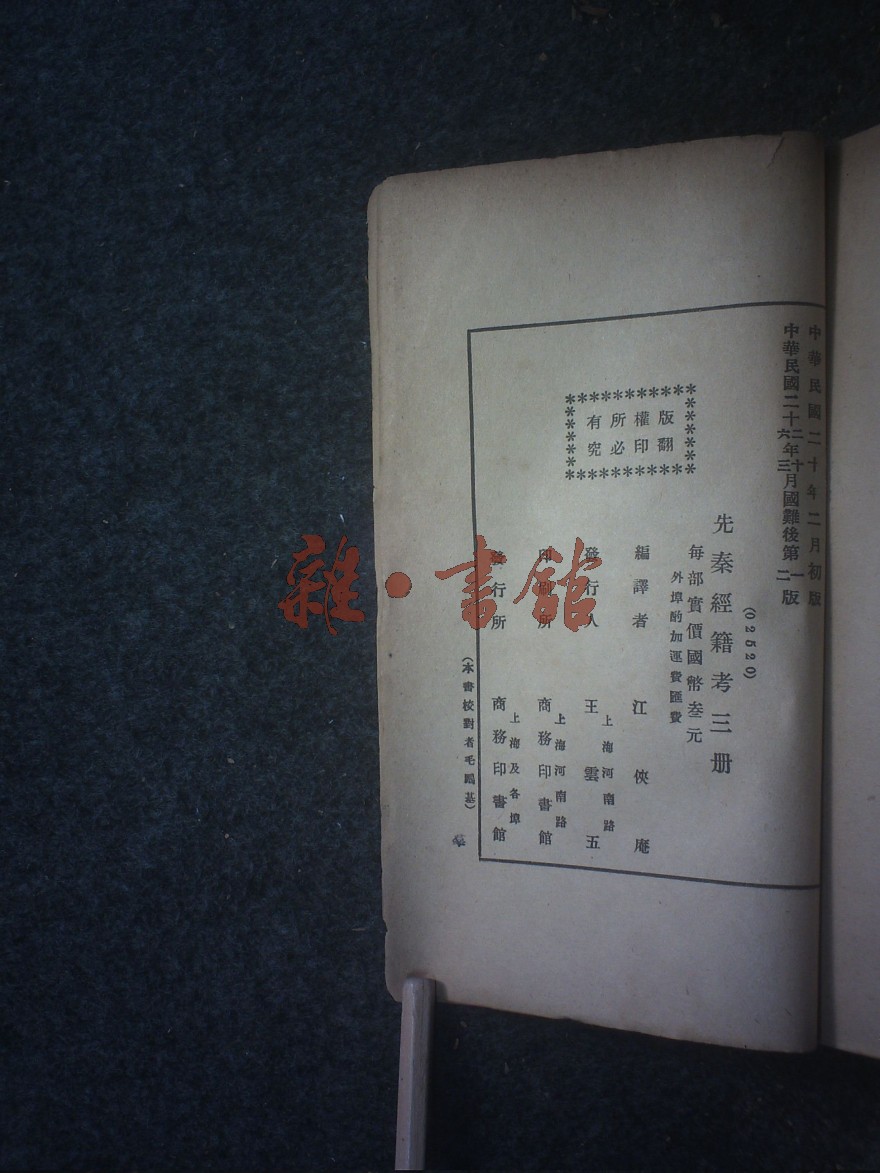 中華民國二十年二月初版
中華民國二十二年十月國難後第一版
六 三 二
版權所有
翻印必究
(02520)
先秦經籍考三册
每部實價國幣叁元
外埠酌加運費匯費
編譯者 江俠庵
上海河南路
發行人 王雲五
上海河南路
印刷所 商務印書館
上海及各埠
發行所 商務印書館
(本書校對者毛鷗基)
雜·書館